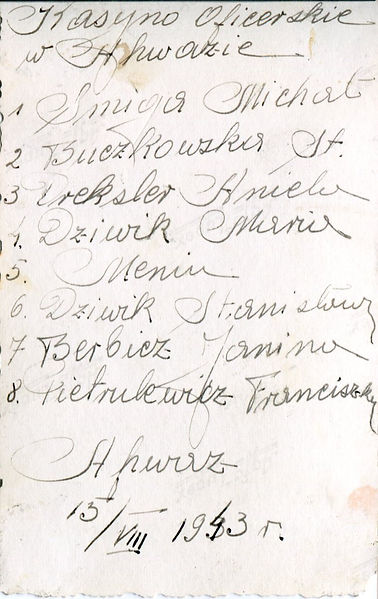 Kasyno Oficerskie
w Ahwazie
1 Śmiga Michał
2 Buczkowska St.
3 Dreksler Aniela
4. Dziwik Maria
5. Meniu
6. Dziwik Stanisława
7 Berbicz Janina
8. Pietrulewicz Franciszka
Ahwaz
15/VIII 1943 r.